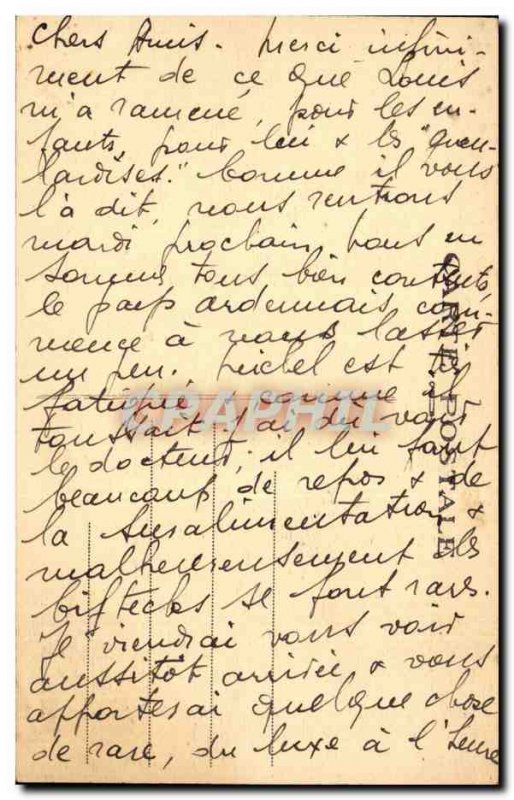 Chers Amis. Merci infini-
ment de ce que Louis
m'a ramené, pour les en-
fants, pour lui & les "gour-
lardises." Comme il vous
l'a dit, nous rentrons
mardi prochain, nous en
sommes tous bien contents,
le pays ardennais com-
mence à nous lasser
un peu. Michel est
fatigué & comme il
toussait j'ai du voir
le docteur, il lui faut
beaucoup de repos & de
la suralimentation &
malheureusement les
biftecks se font rares.
Je viendrai vous voir
aussitôt arrivée & vous
apporterai quelque chose
de rare, du luxe à l'heure
CARTE POSTALE
CPAPHIL